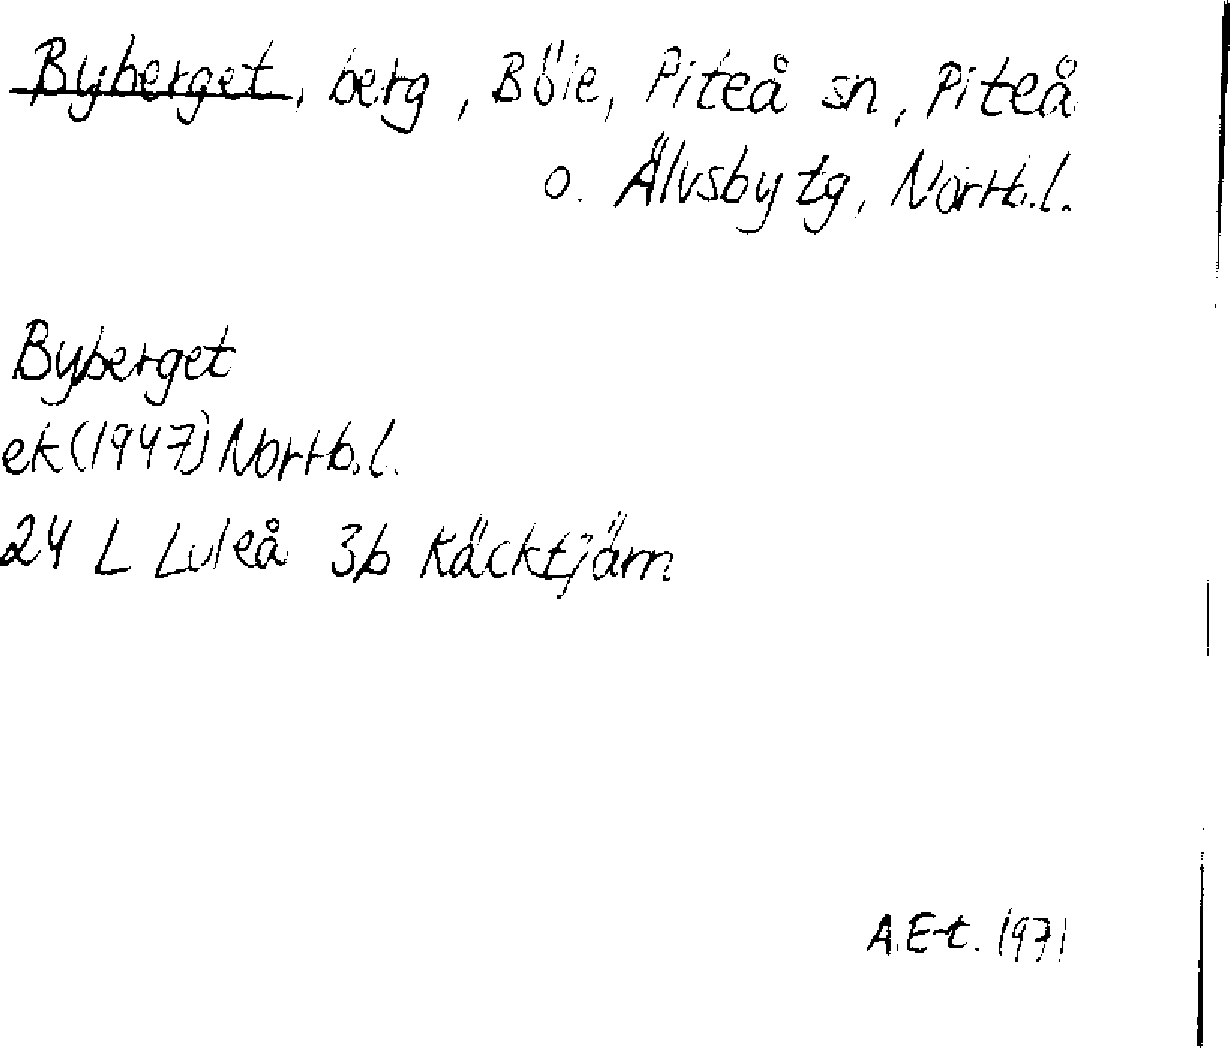 Byberget, berg, Böle, Piteå sn, Piteå
o. Älvsby tg, Norrb.l.
Byberget
ek (1947) Norrb.l.
24 L Luleå 3b Käcktjärn
A.E-t. 1971